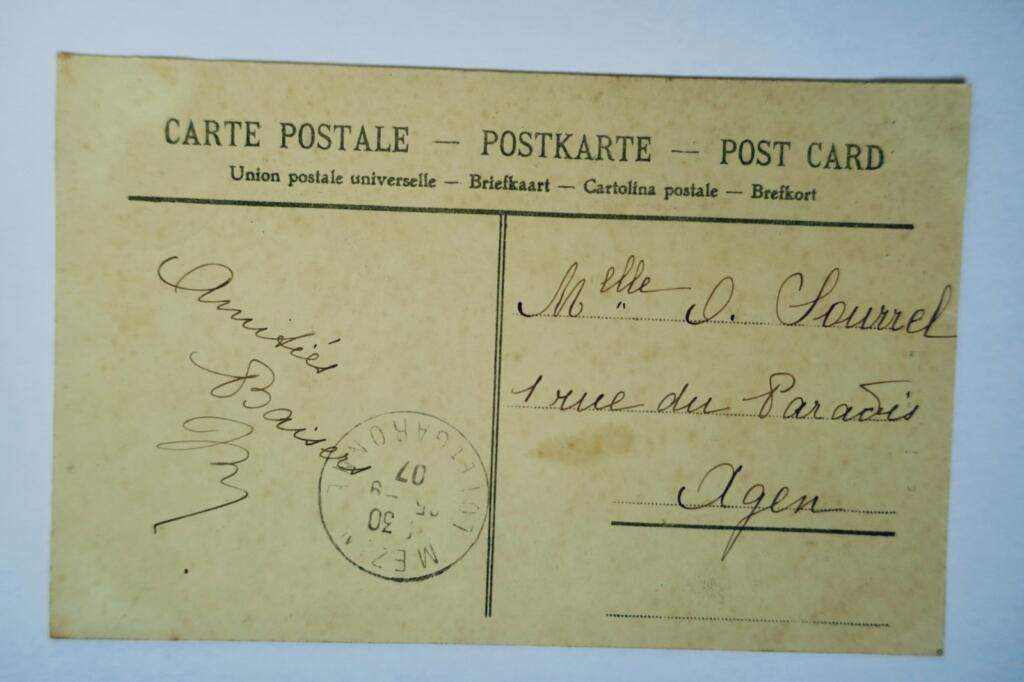 CARTE POSTALE — POSTKARTE — POST CARD
Union postale universelle — Briefkaart — Cartolina postale — Brefkort
Amitiés
Baisers
Melle O. Sourrel
1 rue du Paradis
Agen
LOT ET GARON
30
07
MEZ